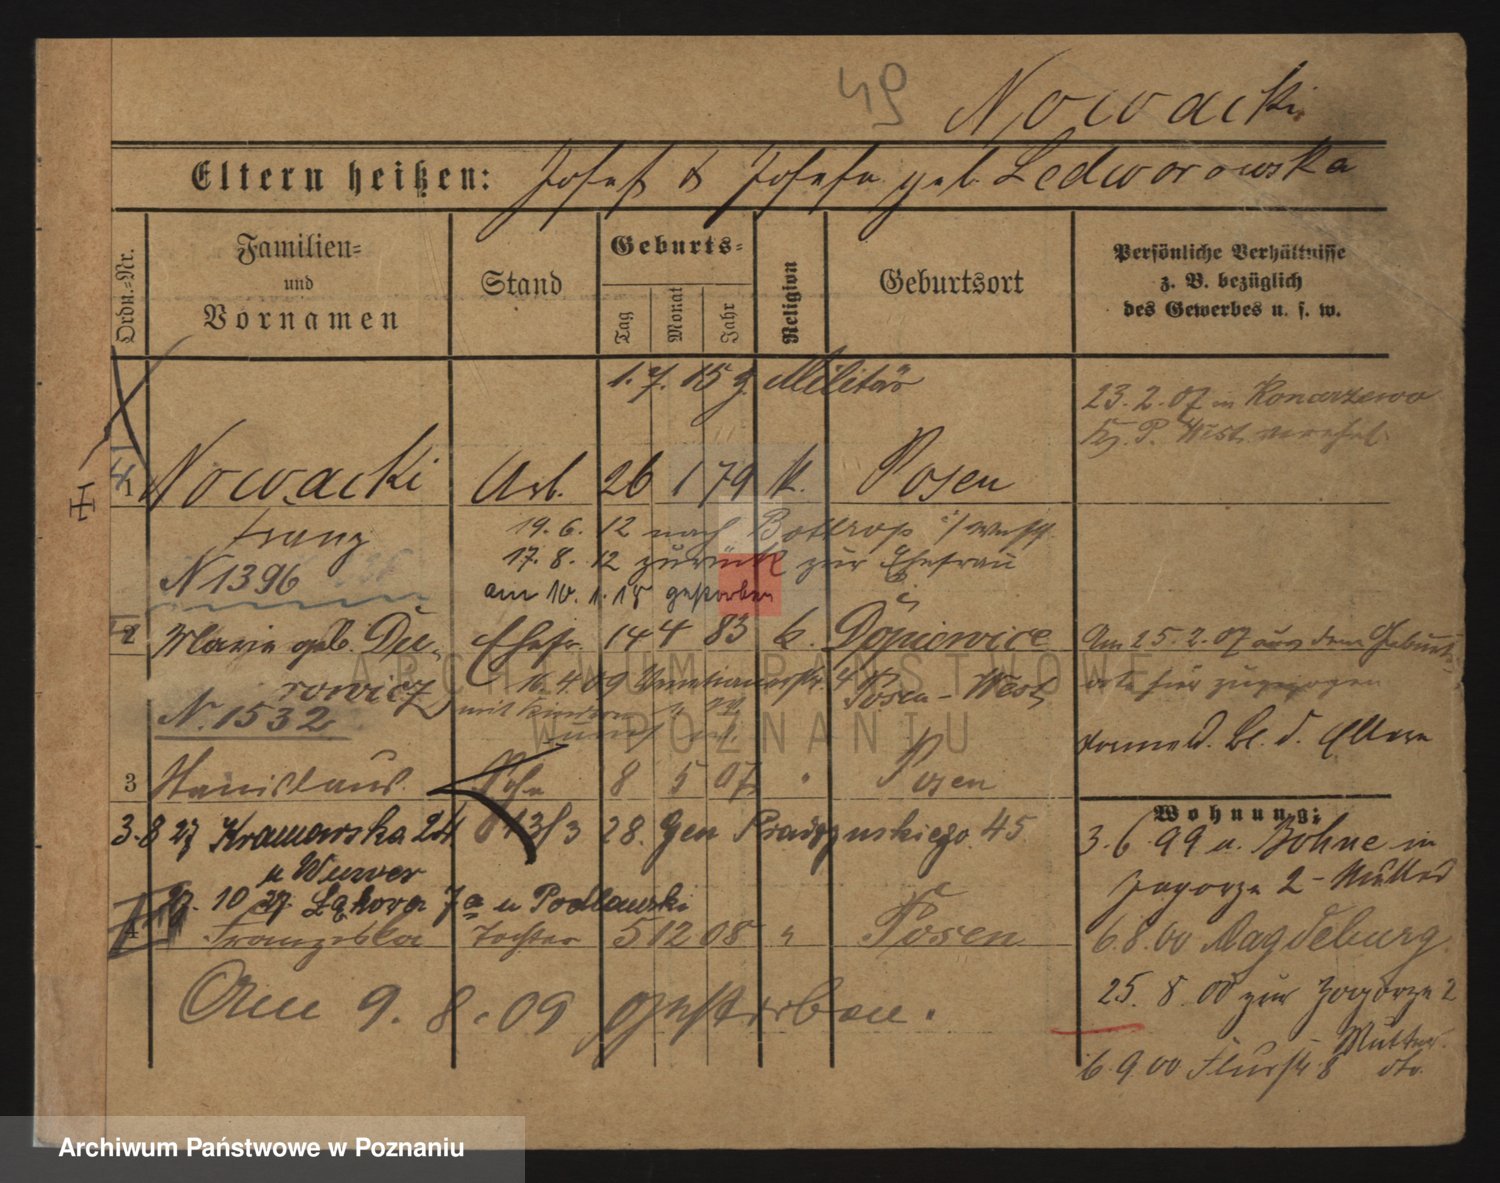 49
Nowacki
Eltern heißen: Josef & Josefa geb. Ledworowska
Ordn.-Nr.
Familien-
und
Vornamen
Stand
Geburts-
Tag
Monat
Jahr
Religion
Geburtsort
Persönliche Verhältnisse
z. B. bezüglich
des Gewerbes u. s. w.
1. 7. 15 z. Militär
23.2.07 in Konarzewo
Kr. P. West vereh.
1 Nowacki Arb. 26 1 79 k. Posen
Franz
19. 6. 12 nach Bottrop
17. 8. 12 zurück zur Ehefrau
N 1396
am 10. 1. 18 gestorben
2 Maria geb. Du- Ehefr. 14 4 83 k. Dopiewice
Am 25.2.07 aus dem Geburts-
orte hier zugezogen
rowicz
16.4.09
Posen-West
N. 1532
mit Kindern
Bl. d. Eltern
3 Stanislaus Sohn 8 5 07 " Posen
Wohnung:
3.8 27 Kramarska 24 13/3 28. Gen Prądzyńskiego 45
3.6.99 u. Bohne in
u Wuwer
Zagorze 2 - Mutter
10 27 Łąkowa 7a u Podlawski
4 Franziska Tochter 5 12 08 " Posen
6.8.00 Magdeburg.
Am 9. 8. 09 gestorben.
25. 8. 00 zur Zagorze 2
Mutter.
6.9.00 Flurstr. 8 dto.
ARCHIWUM PAŃSTWOWE
W POZNANIU
Archiwum Państwowe w Poznaniu